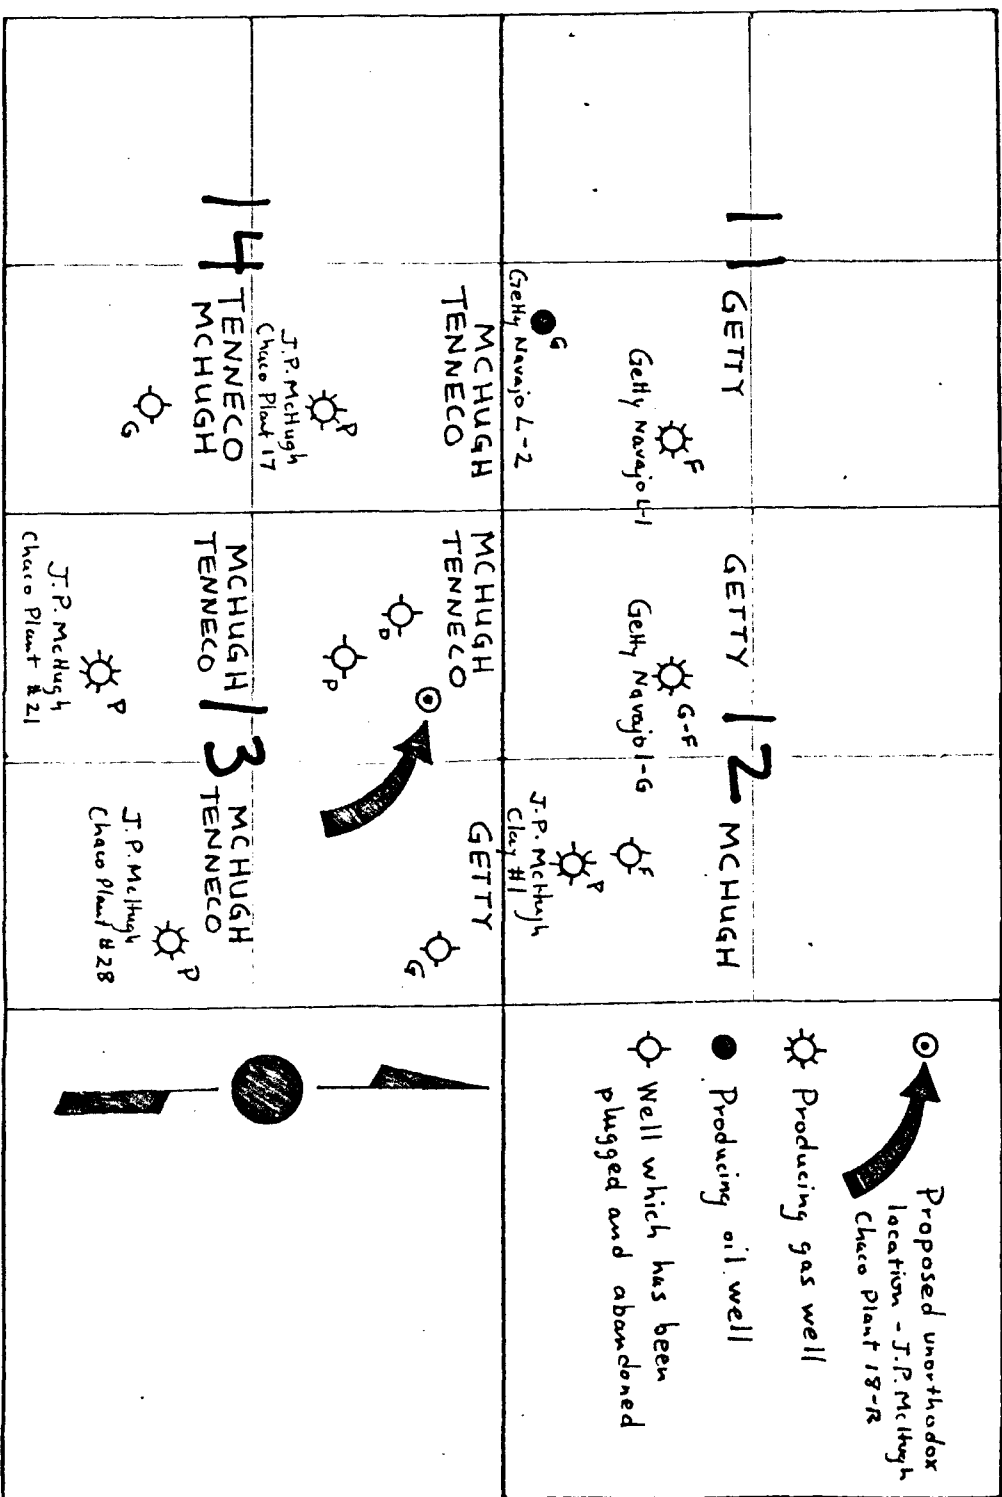 11
GETTY
Getty Navajo L-1
F
G
Getty Navajo L-2
GETTY
12
MCHUGH
Getty Navajo 1-G
G-F
F
P
J.P. McHugh
Clay #1
MCHUGH
TENNECO
14
TENNECO
MCHUGH
P
J.P. McHugh
Chaco Plant 17
G
MCHUGH
TENNECO
D
P
GETTY
G
MCHUGH
TENNECO
13
MCHUGH
TENNECO
P
J.P. McHugh
Chaco Plant #21
P
J.P. McHugh
Chaco Plant #28
Proposed unorthodox
location - J.P. McHugh
Chaco Plant 18-R
Producing gas well
Producing oil well
Well which has been
plugged and abandoned